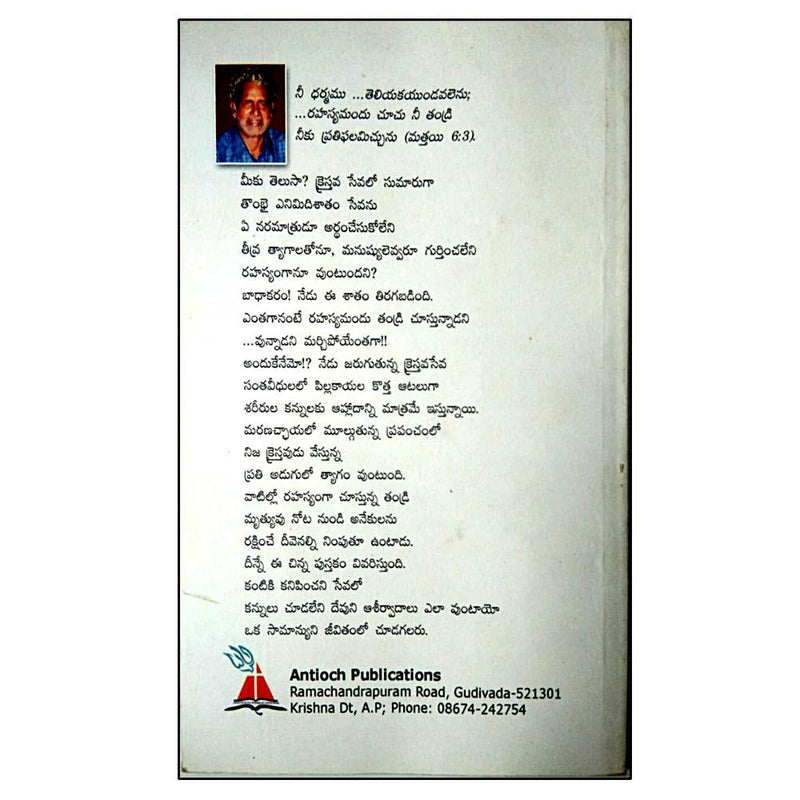 నీ ధర్మము ...తెలియకయుండవలెను;
...రహస్యమందు చూచు నీ తండ్రి
నీకు ప్రతిఫలమిచ్చును (మత్తయి 6:3).
మీకు తెలుసా? క్రైస్తవ సేవలో సుమారుగా
తొంభై ఎనిమిదిశాతం సేవను
ఏ నరమాత్రుడూ అర్థంచేసుకోలేని
తీవ్ర త్యాగాలతోనూ, మనుష్యులెవ్వరూ గుర్తించలేని
రహస్యంగానూ వుంటుందని?
బాధాకరం! నేడు ఈ శాతం తిరగబడింది.
ఎంతగానంటే రహస్యమందు తండ్రి చూస్తున్నాడని
...వున్నాడని మర్చిపోయేంతగా!!
అందుకేనేమో!? నేడు జరుగుతున్న క్రైస్తవసేవ
సంతవీధులలో పిల్లకాయల కొత్త ఆటలుగా
శరీరుల కన్నులకు ఆహ్లాదాన్ని మాత్రమే ఇస్తున్నాయి.
మరణచ్ఛాయలో మూల్గుతున్న ప్రపంచంలో
నిజ క్రైస్తవుడు వేస్తున్న
ప్రతి అడుగులో త్యాగం వుంటుంది.
వాటిల్లో రహస్యంగా చూస్తున్న తండ్రి
మృత్యువు నోట నుండి అనేకులను
రక్షించే దీవెనల్ని నింపుతూ ఉంటాడు.
దీన్నే ఈ చిన్న పుస్తకం వివరిస్తుంది.
కంటికి కనిపించని సేవలో
కన్నులు చూడలేని దేవుని ఆశీర్వాదాలు ఎలా వుంటాయో
ఒక సామాన్యుని జీవితంలో చూడగలరు.
Antioch Publications
Ramachandrapuram Road, Gudivada-521301
Krishna Dt, A.P; Phone: 08674-242754